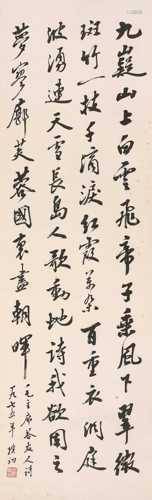 九嶷山上白雲飛帝子乘風下翠微
斑竹一枝千滴淚红霞萬朵百重衣洞庭
波涌連天雪長島人歌動地詩我欲因之
夢寥廓芙蓉國裏盡朝暉
毛主席答友人詩
一九七五年 樸初